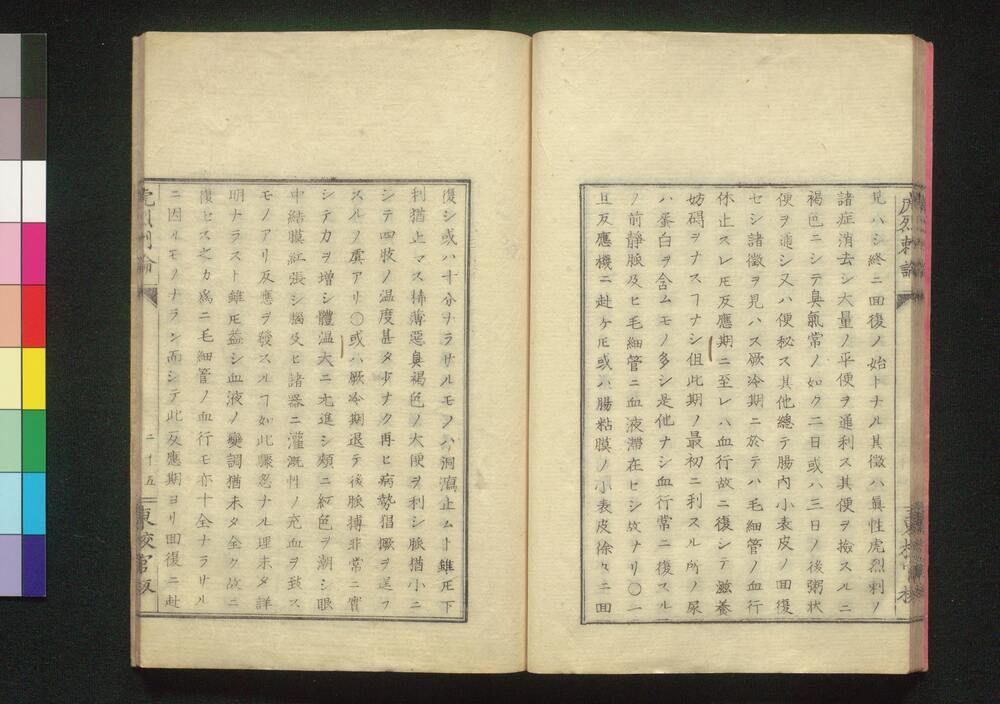 見ハシ終ニ回復ノ始トナル其徴ハ眞性虎烈刺ノ
諸症消去シ大量ノ平便ヲ通利ス其便ヲ撿スルニ
褐色ニシテ臭氣常ノ如ク二日或ハ三日ノ後粥狀
便ヲ通シ又ハ便秘ス其他總テ腸内小表皮ノ回復
セシ諸徴ヲ見ハス厥冷期ニ於テハ毛細管ノ血行
休止スレ𪜈反應期ニ至レハ血行故ニ復シテ滋養
妨碍ヲナスヿナシ但此期ノ最初ニ利スル所ノ尿
ハ蛋白ヲ含ムモノ多シ是他ナシ血行常ニ復スル
ノ前靜脈及ヒ毛細管ニ血液滯在セシ故ナリ〇一
旦反應機ニ赴ケ𪜈或ハ腸粘膜ノ小表皮徐々ニ回
復シ或ハ十分ヲラサルモノハ洞瀉止ムト雖𪜈下
利猶止マス稀薄惡臭褐色ノ大便ヲ利シ脈猶小ニ
シテ四肢ノ温度甚タ少ナク再ヒ病勢猖獗ヲ逞フ
スルノ虞アリ〇或ハ厥冷期退テ後脈搏非常ニ實
シテ力ヲ增シ體温大ニ亢進シ頰ニ紅色ヲ潮シ眼
中結膜紅張シ腦及ヒ諸器ニ灌漑性ノ充血ヲ致ス
モノアリ反應ヲ發スルヿ如此驟忽ナル理未タ詳
明ナラスト雖𪜈益シ血液ノ變調猶未タ全ク故ニ
復セス之カ爲ニ毛細管ノ血行モ亦十全ナラサル
ニ因ルモノナラン而シテ此反應期ヨリ回復ニ赴
二十五
東校官板